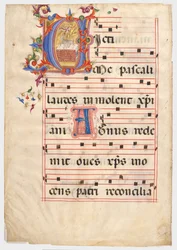 Victi
me pascali
laudes im molent xp̄i
ani Agnus rede
mit oues xp̄s ino
cens patri reconcilia